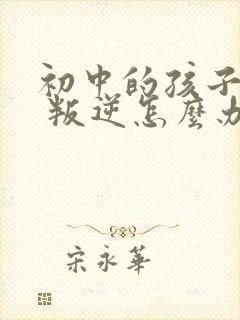 初中的孩子
叛逆怎麼办
宋永華